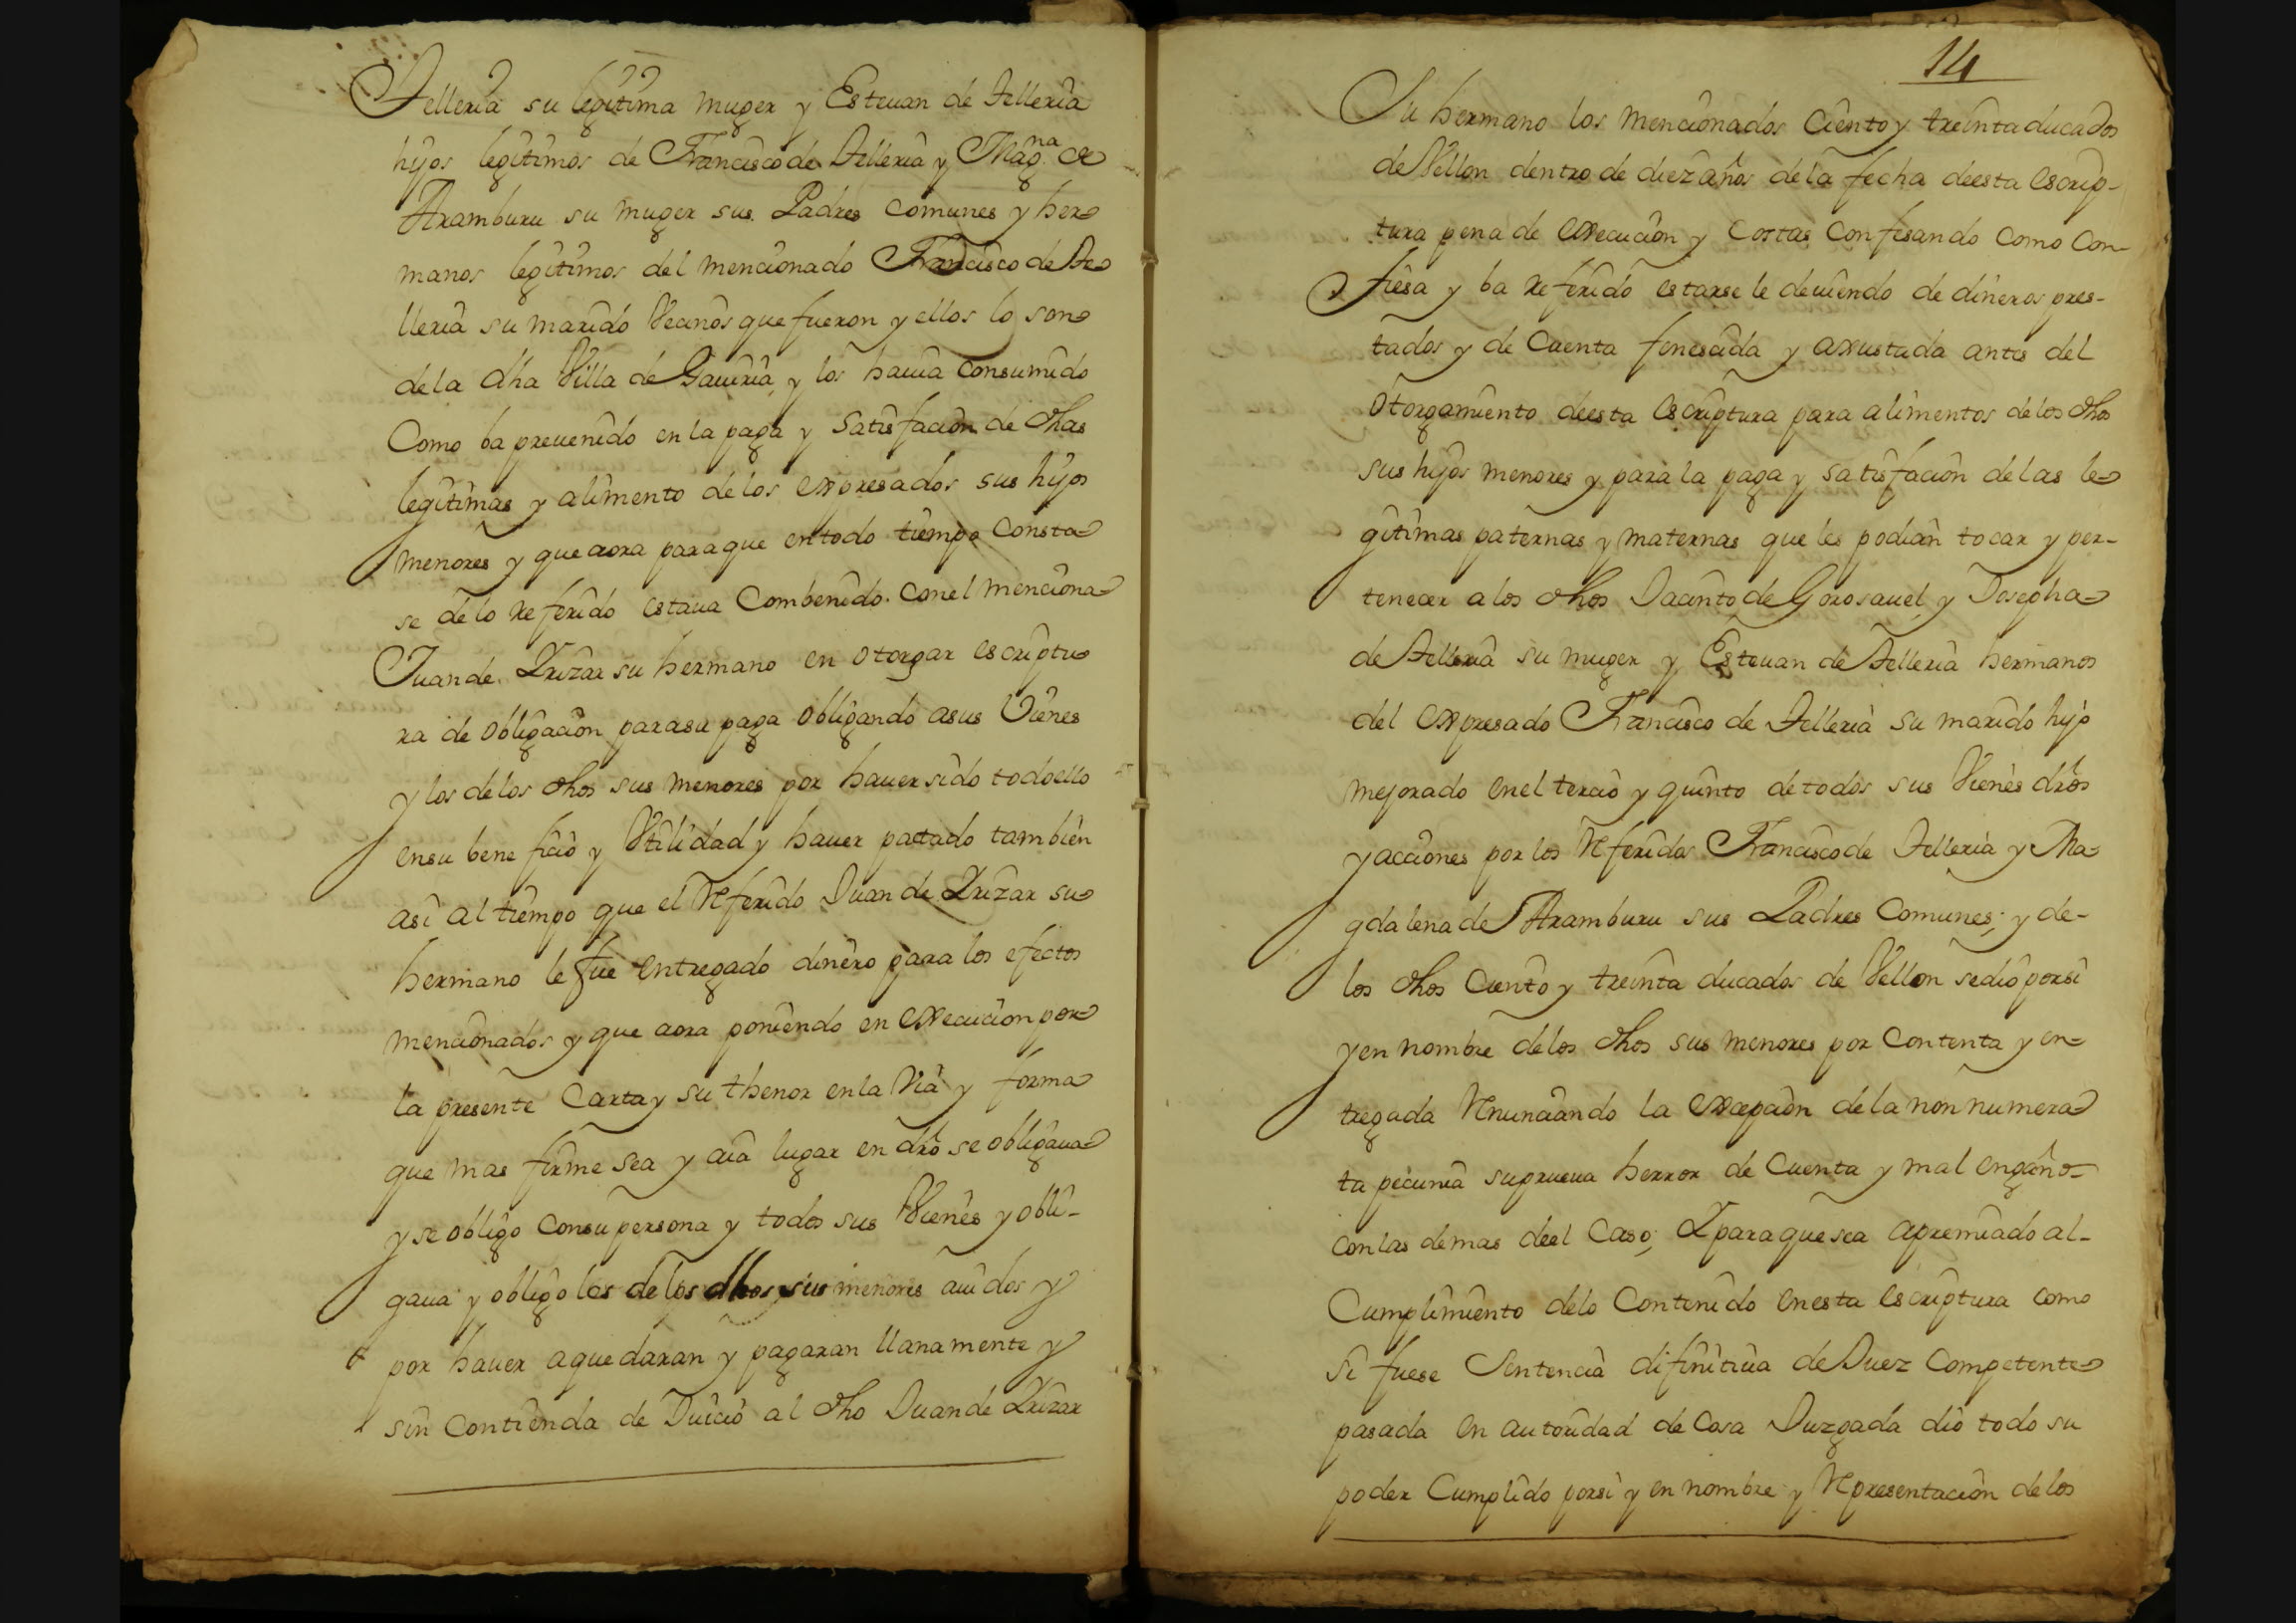 Telleria su legitima muger y Esteuan de Telleria
hijos legitimos de Francisco de Telleria y Magna de
Aramburu su muger sus Padres comunes y her
manos legitimos del mencionado Francisco de Te
lleria su marido Vecinos que fueron y ellos lo son
de la dha Villa de Gauiria, y los hauia consumido
Como ba preuenido en la paga y Satisfacion de dhas
legitimas y alimento de los expresados sus hijos
menores y que aora para que en todo tiempo Consta
se de lo referido estaua Combenido. con el menciona
Juan de Yrizar su hermano en otorgar escriptu
ra de obligacion para su paga obligando a sus Vienes
y los de los dhos sus menores por hauer sido todo ello
en su beneficio y Vtilidad y hauer pactado tambien
asi al tiempo que el referido Juan de Yrizar su
hermano le fue entregado dinero para los efectos
mencionados y que aora poniendo en execucion por
la presente Carta y su thenor en la Via y forma
que mas firme sea y aia lugar en dro se obligaua
y se obligo con su persona y todos sus Vienes y obli-
gaua y obligo los de los dhos sus menores auidos y
por hauer a que daran y pagaran llanamente y
sin Contienda de Juicio al dho Juan de Yrizar
14
Su hermano los mencionados Ciento y treinta ducados
de Vellon dentro de diez años de la fecha de esta escrip-
tura pena de execucion y Costas Confesando como Con-
fiesa y ba referido estarse le deuiendo de dineros pres-
tados y de Cuenta fenescida y axustada antes del
Otorgamiento de esta escriptura para alimentos de los dhos
sus hijos menores y para la paga y satisfacion de las le
gitimas paternas y maternas que les podian tocar y per-
tenecer a los dhos Jacinto de Gorosauel, y Josepha
de Telleria su muger y Esteuan de Telleria hermanos
del expresado Francisco de Telleria su marido hijo
mejorado en el tercio y quinto de todos sus Vienes dros
y acciones por los referidos Francisco de Telleria y Ma
gdalena de Aramburu sus Padres Comunes; y de-
los dhos Ciento y treinta ducados de Vellon se dio por si
y en nombre de los dhos sus menores por Contenta y en-
tregada renunciando la excepcion de la non numera
ta pecunia su prueua herror de Cuenta y mal engaño-
con las demas de el Caso; Y para que sea apremiado al-
Cumplimiento de lo Contenido en esta escriptura como
si fuese Sentencia difinitiua de Juez Competente
pasada en autoridad de Cosa Juzgada dio todo su
poder Cumplido por si y en nombre y representacion de los